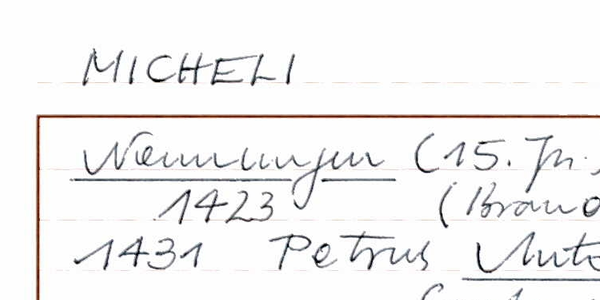 MICHELI
Nennungen (15. Jh.
1423 (Brand
1431 Petrus